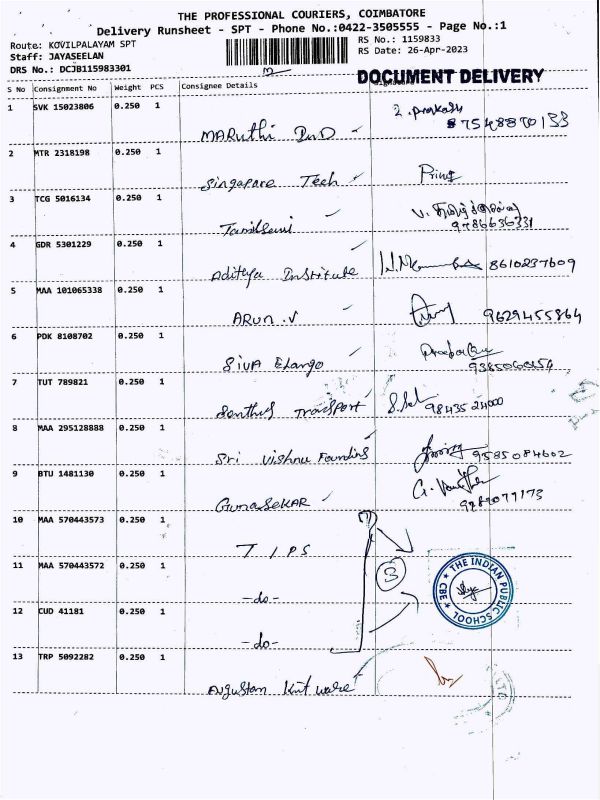 THE PROFESSIONAL COURIERS, COIMBATORE
Delivery Runsheet - SPT - Phone No.:0422-3505555 - Page No.:1
Route: KOVILPALAYAM SPT
RS No.: 1159833
Staff: JAYASEELAN
RS Date: 26-Apr-2023
DRS No.: DCJB115983301
DOCUMENT DELIVERY
S No Consignment No Weight PCS Consignee Details
1 SVK 15023806 0.250 1
MARuthi DnD 7548870133
2 MTR 2318198 0.250 1
Singapore Tech
3 TCG 5016134 0.250 1
Tamilselvi 9786636331
4 GDR 5301229 0.250 1
Aditya Institute 8610237609
5 MAA 101065338 0.250 1
ARUN .V 9629455864
6 PDK 8108702 0.250 1
SIVA Elango
7 TUT 789821 0.250 1
Senthil Transport 9843524000
8 MAA 295128888 0.250 1
Sri Vishnu Founding 9585084602
9 BTU 1481130 0.250 1
GunaSeKAR
10 MAA 570443573 0.250 1
T I P S
11 MAA 570443572 0.250 1
-do-
3
THE INDIAN PUBLIC SCHOOL
CBE
12 CUD 41181 0.250 1
-do-
13 TRP 5092282 0.250 1
Augustan Knit ware